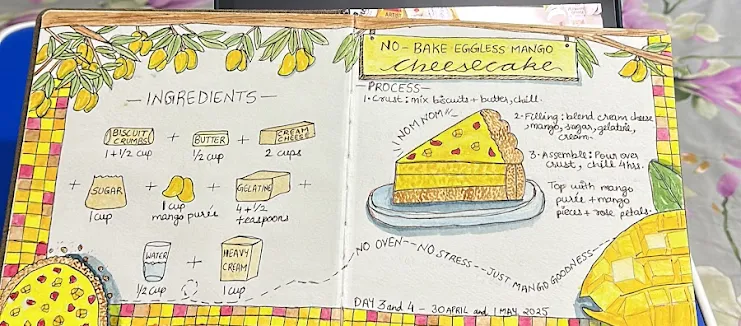 - INGREDIENTS -
BISCUIT CRUMBS
1 + 1/2 cup
+
BUTTER
1/2 cup
+
CREAM CHEESE
2 cups
+
SUGAR
1 cup
+
1 cup
mango purée
+
GELATINE
4 + 1/2
teaspoons
+
WATER
1/2 cup
+
HEAVY CREAM
1 cup
NO-BAKE EGGLESS MANGO
cheesecake
- PROCESS -
1. Crust: mix biscuits + butter, chill.
2. Filling: blend cream cheese
, mango, sugar, gelatine,
cream.
3. Assemble: Pour over
crust, chill 4hrs.
Top with mango
purée + mango
pieces + rose petals.
NOM NOM
NO OVEN -- NO STRESS -- JUST MANGO GOODNESS
DAY 3 and 4 - 30 APRIL and 1 MAY, 2025